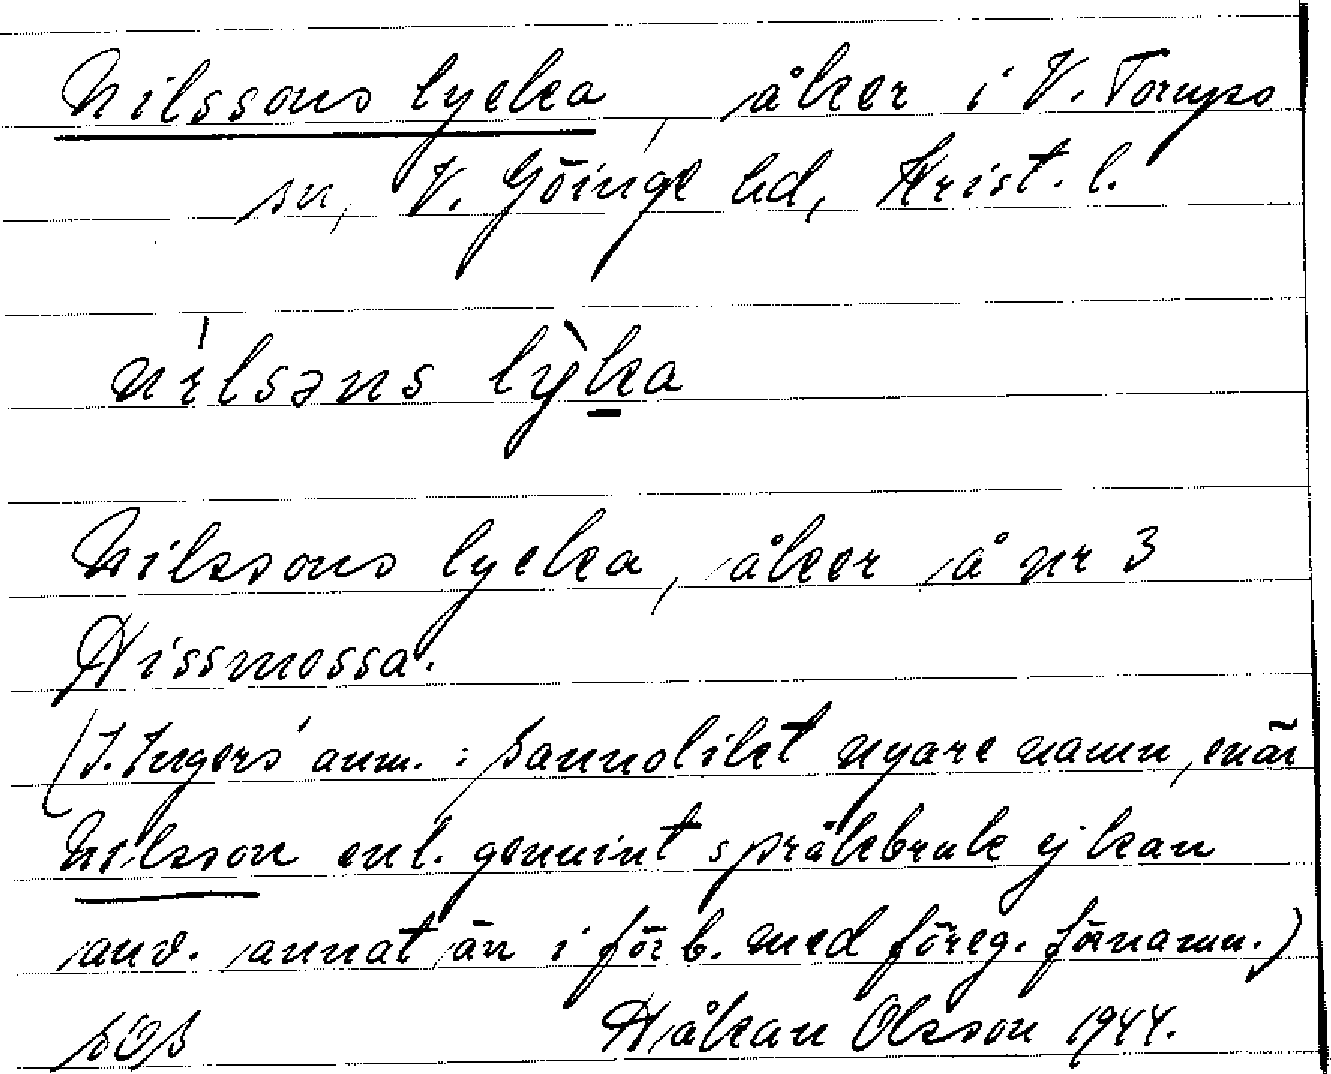 Nilssons lycka, åker i V. Torups
sn, V. Göinge hd, Krist. l.
nílsəns lỳka
Nilssons lycka, åker å nr 3
Hissmossa.
(I. Ingers' anm.: Sannolikt nyare namn, enär
Nilsson enl. genuint språkbruk ej kan
anv. annat än i förb. med föreg. förnamn.)
Håkan Olsson 1944.